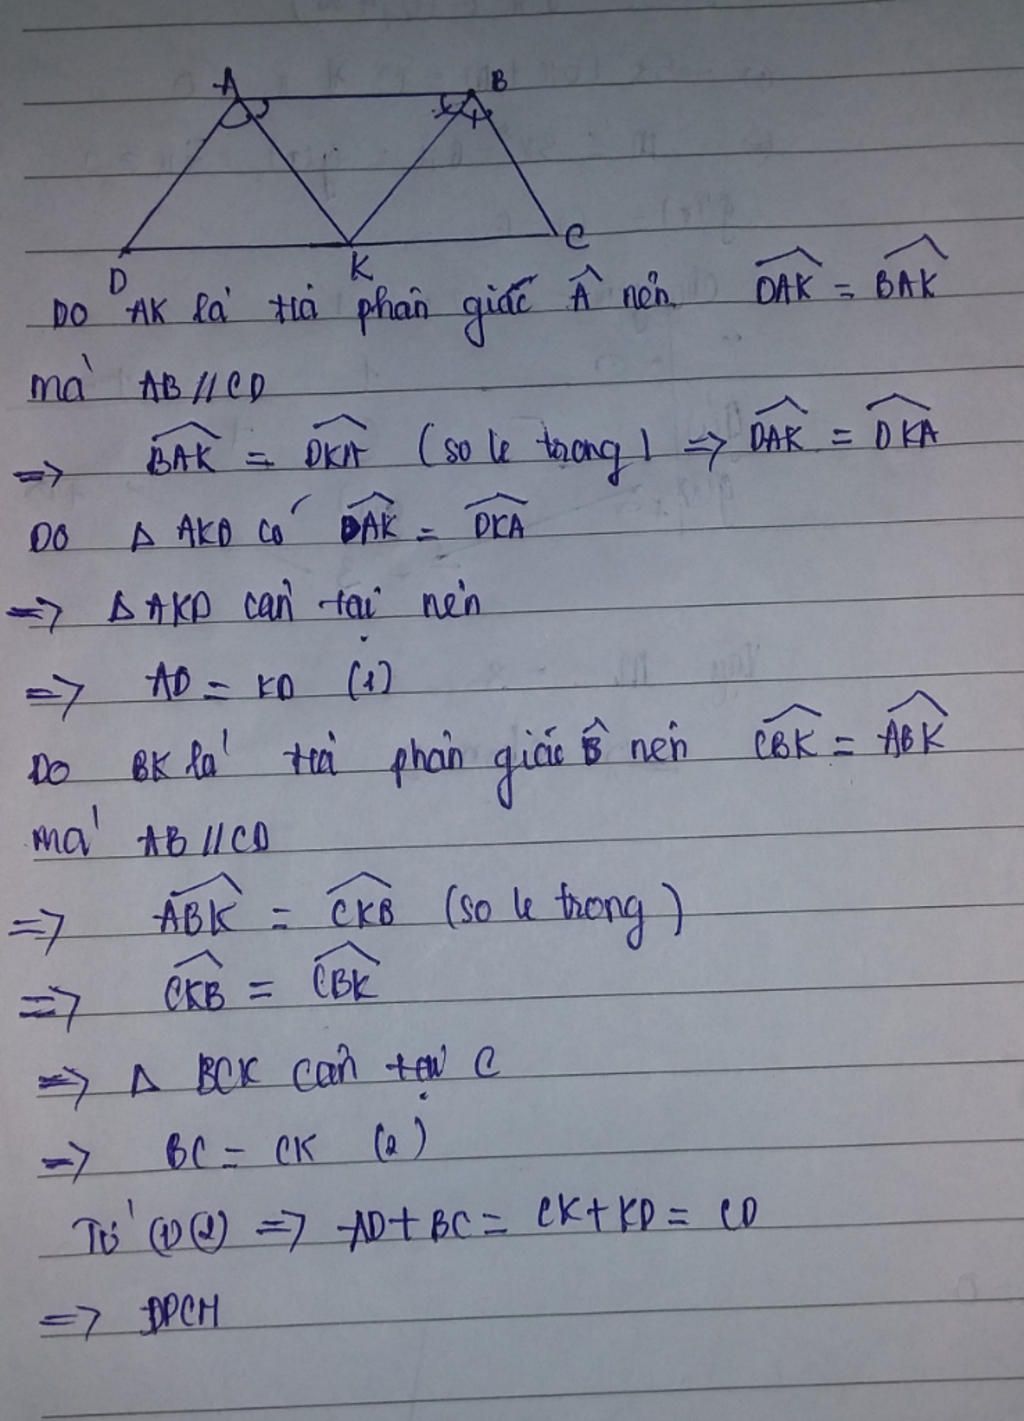 A B
D K C
Do AK là tia phân giác Â nên $\widehat{DAK} = \widehat{BAK}$
mà AB // CD
=> $\widehat{BAK} = \widehat{DKA}$ (so le trong) => $\widehat{DAK} = \widehat{DKA}$
Do Δ AKD có $\widehat{DAK} = \widehat{DKA}$
=> Δ AKD cân tại nên
=> AD = KD (1)
Do BK là tia phân giác $\widehat{B}$ nên $\widehat{CBK} = \widehat{ABK}$
mà AB // CD
=> $\widehat{ABK} = \widehat{CKB}$ (so le trong)
=> $\widehat{CKB} = \widehat{CBK}$
=> Δ BCK cân tại C
=> BC = CK (2)
Từ (1) (2) => AD + BC = CK + KD = CD
=> DPCM